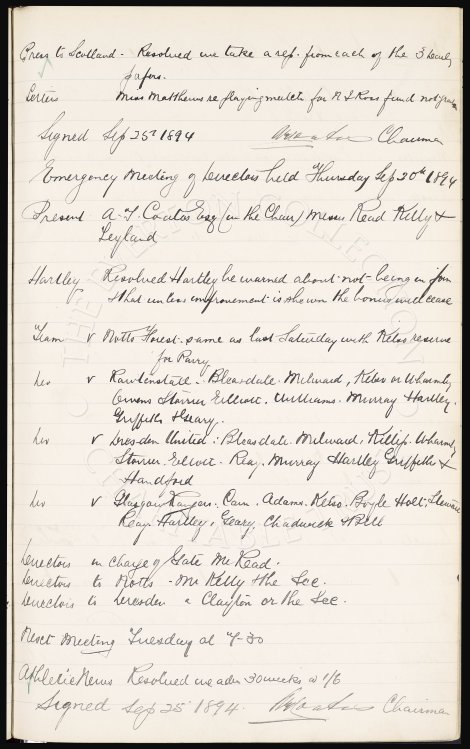 Press to Scotland - Resolved we take a rep. from each of the 3 Evening
papers.
Letters Miss Matthews re playing match for N J Ross fund not
Signed Sep 25th 1894 Chairman
Emergency Meeting of Directors held Thursday Sep 20th 1894
Present A.T. Coates Esq (in the Chair) Messrs Read Kelly &
Leyland
Hartley Resolved Hartley be warned about not being in form
& that unless improvement is shewn the bonus will cease
Team v Notts Forest - same as last Saturday with Kelso reserve
for Parry
do v Rawtenstall - Bleasdale. Milward, Kelso or Wharmby
Owens Storrier Elliott. Williams. Murray Hartley.
Griffiths & Geary.
do v Dresden United: Bleasdale. Milward, Killip. Wharmby
Storrier. Elliott. Reay. Murray Hartley Griffiths &
Handford
do v Glasgow Rangers. Cain. Adams. Kelso. Boyle Holt, Stewart
Reay. Hartley, Geary, Chadwick & Bell
Directors in charge of Gate Mr Read.
Directors to Notts - Mr Kelly & the Sec.
Directors to Dresden a Clayton or the Sec.
Next Meeting Tuesday at 4-30
Athletic News Resolved we adv 30 weeks @ 1/6
Signed Sep 25 1894. Chairman